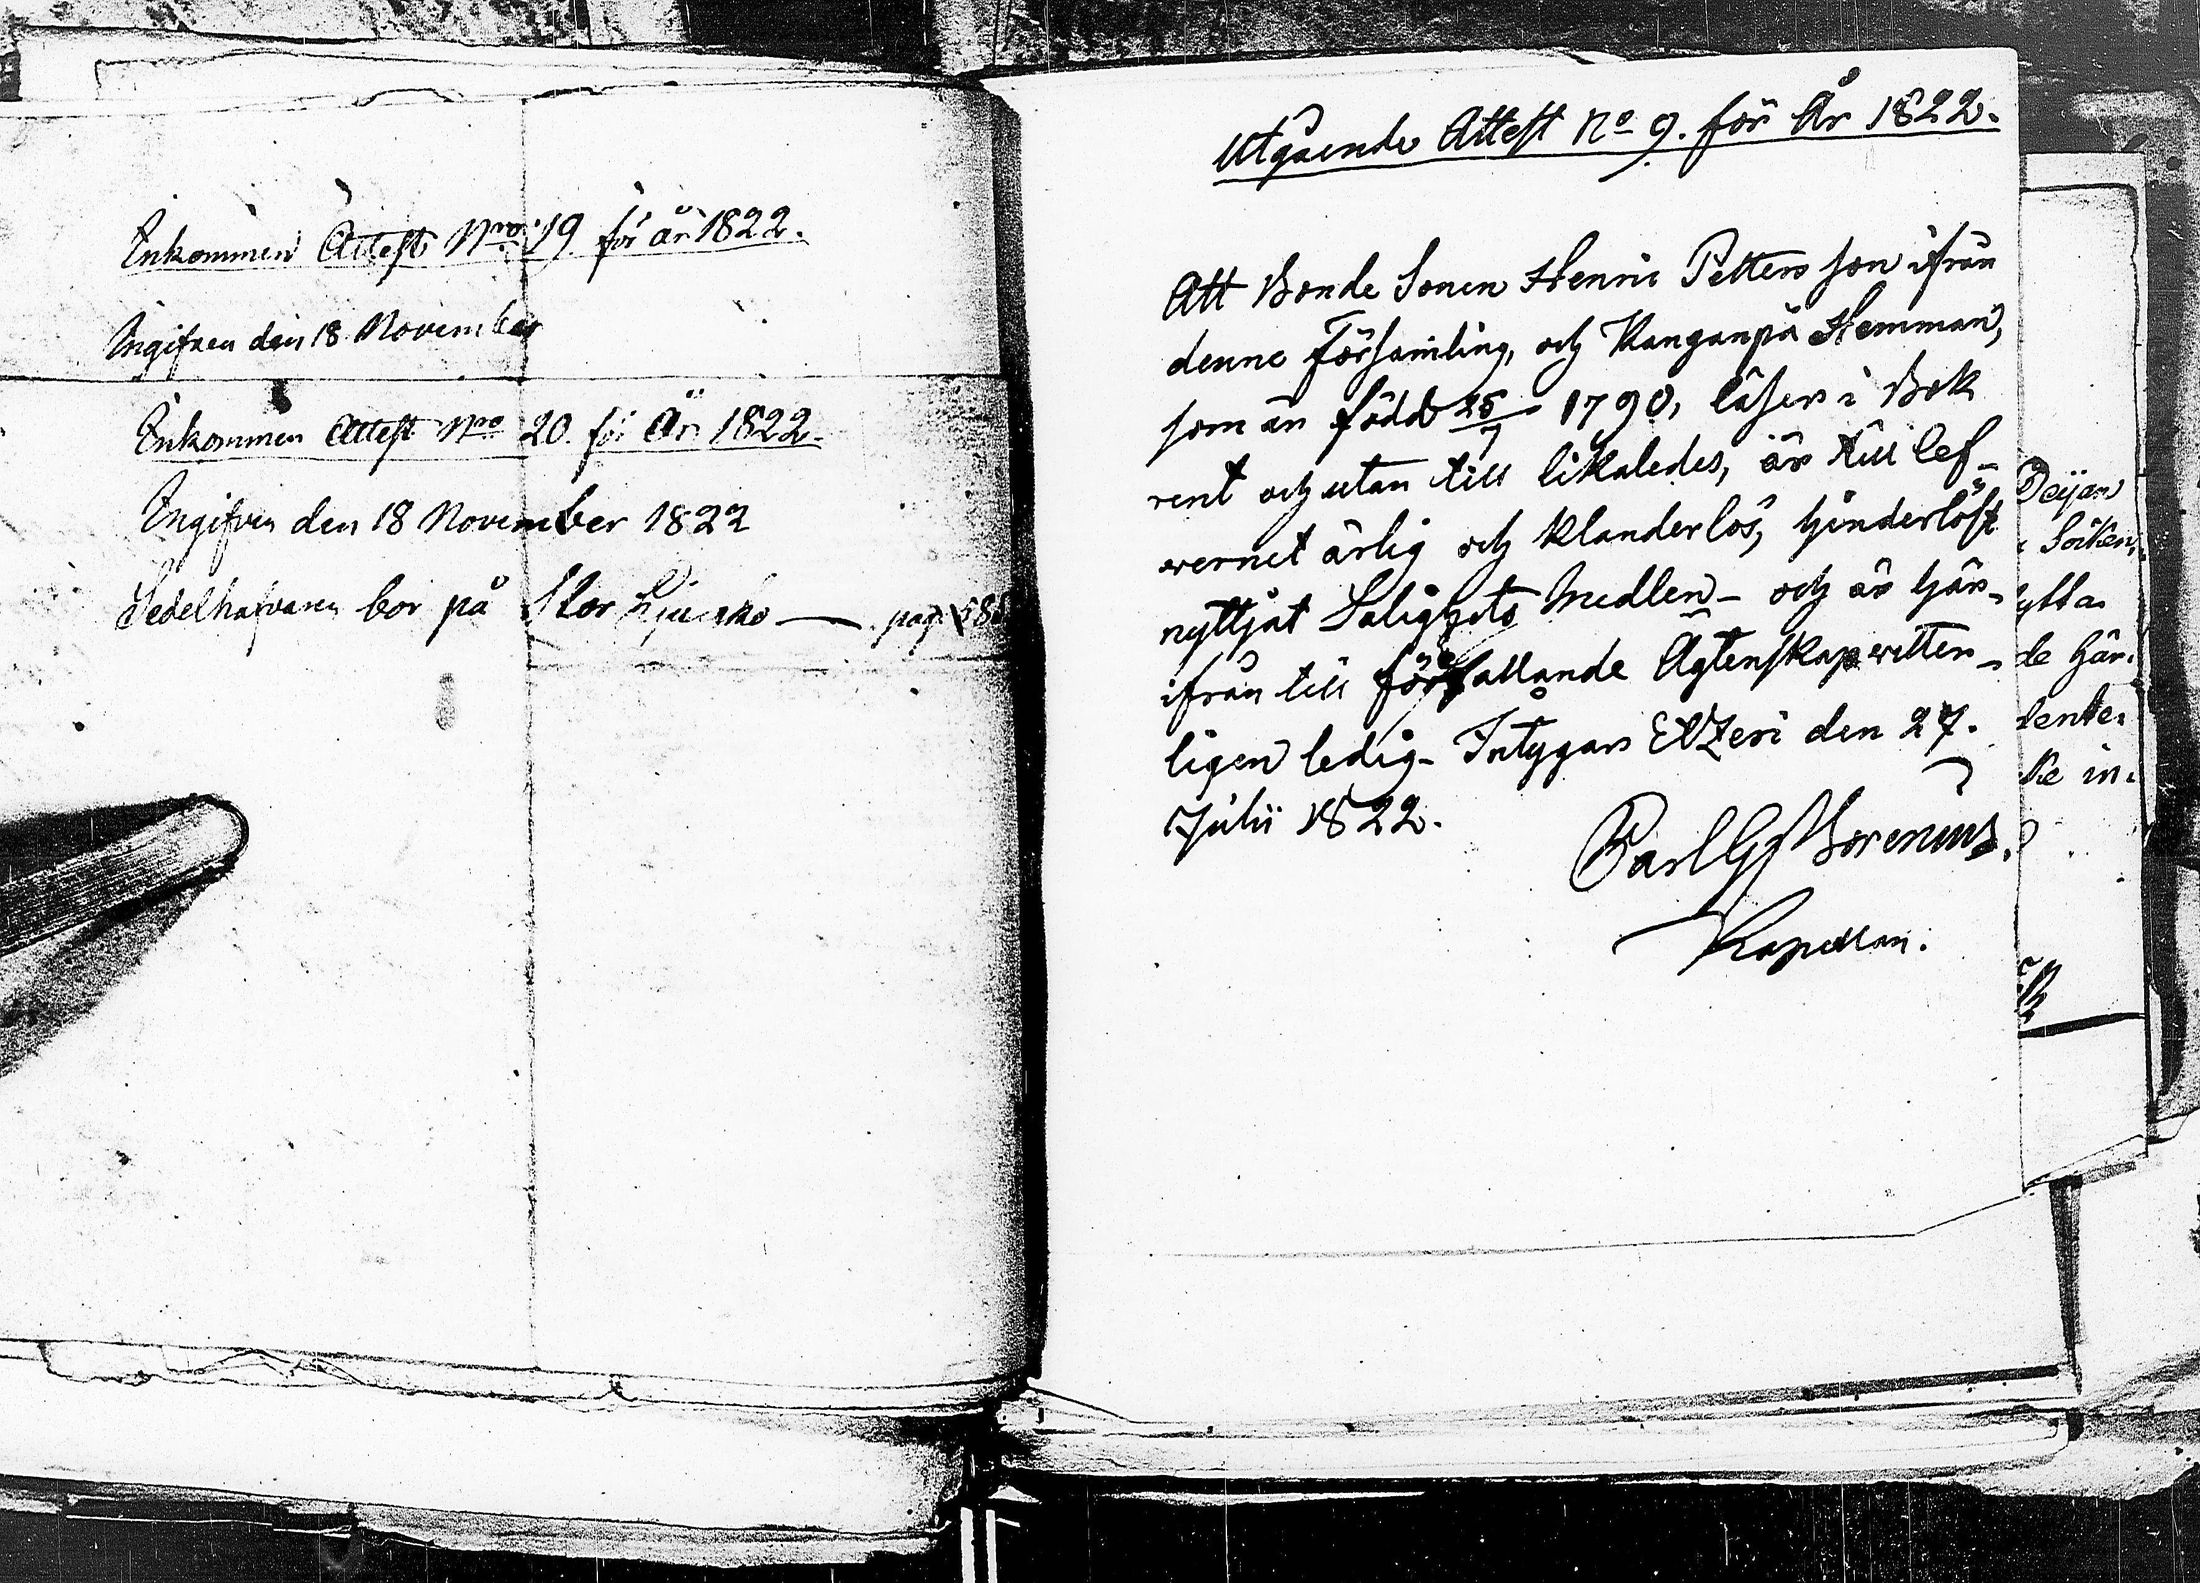 Inkommen Attest Nro 19 för år 1822.
Ingifven den 18 November
Inkommen Attest Nro 20. för År 1822.
Ingifven den 18 November 1822
Sedelhafvaren bor på Stor pag. 58
Utgående Attest No 9. för År 1822.
Att Bonde Sonen Henric Petters son ifrån
denne Församling, och Kanganpä Hemman,
som är född 25/7 1790, läser i Bok
rent och utan till likaledes, är till lef-
wernet ärlig och klanderlös, hinderlöst
nyttjat Salighets Medlen - och är här-
ifrån till förefallande Ägtenskap witter-
ligen ledig - Intygar EXZeri den 27.
Julii 1822.
Carl G. Borenius.
Kapellan.
Deijan
Socken,
ytta
de här.
ke in.